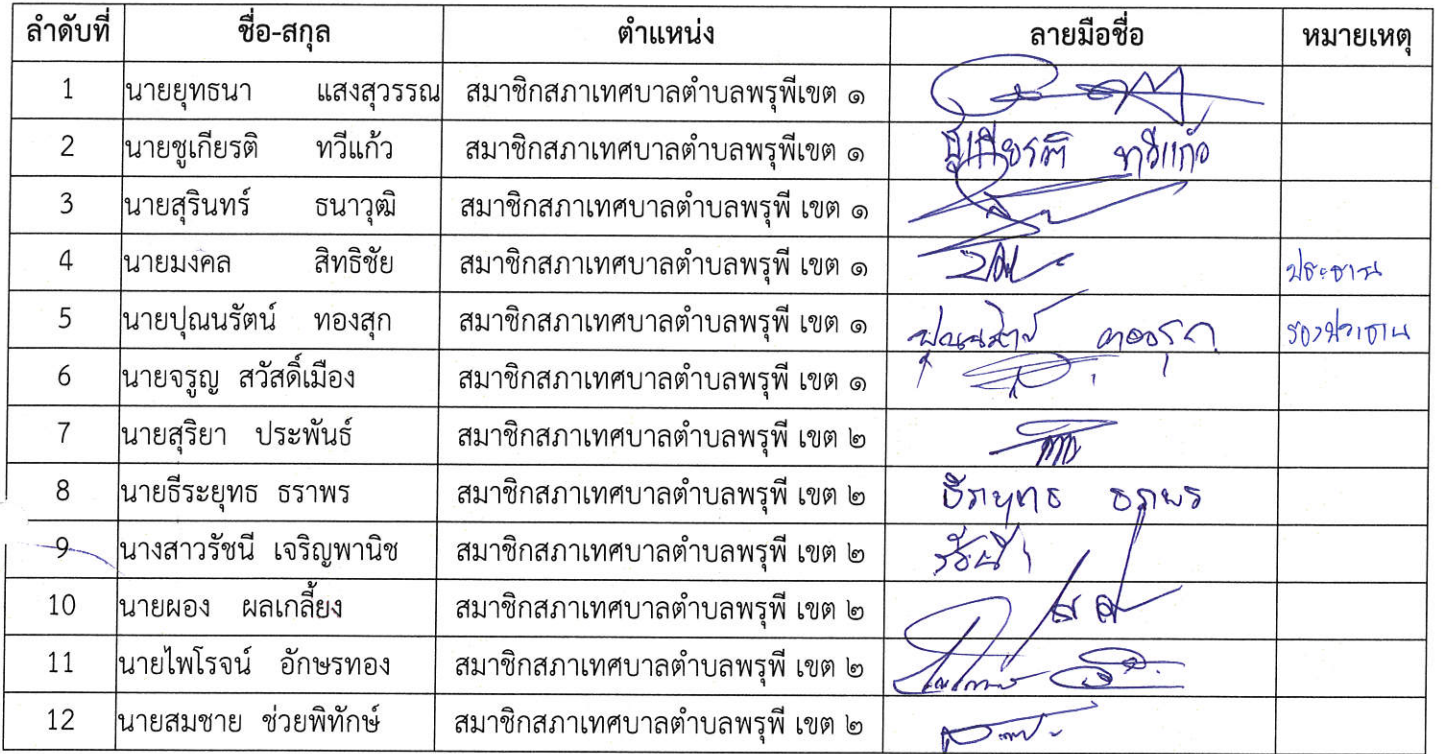 ลำดับที่ ชื่อ-สกุล ตำแหน่ง ลายมือชื่อ หมายเหตุ
1 นายยุทธนา แสงสุวรรณ สมาชิกสภาเทศบาลตำบลพรุพีเขต ๑
2 นายชูเกียรติ ทวีแก้ว สมาชิกสภาเทศบาลตำบลพรุพีเขต ๑ ชูเกียรติ ทวีแก้ว
3 นายสุรินทร์ ธนาวุฒิ สมาชิกสภาเทศบาลตำบลพรุพี เขต ๑
4 นายมงคล สิทธิชัย สมาชิกสภาเทศบาลตำบลพรุพี เขต ๑ ประธาน
5 นายปุณนรัตน์ ทองสุก สมาชิกสภาเทศบาลตำบลพรุพี เขต ๑ ปุณนรัตน์ ทองสุก รองประธาน
6 นายจรูญ สวัสดิ์เมือง สมาชิกสภาเทศบาลตำบลพรุพี เขต ๑
7 นายสุริยา ประพันธ์ สมาชิกสภาเทศบาลตำบลพรุพี เขต ๒
8 นายธีระยุทธ ธราพร สมาชิกสภาเทศบาลตำบลพรุพี เขต ๒ ธีระยุทธ ธราพร
9 นางสาวรัชนี เจริญพานิช สมาชิกสภาเทศบาลตำบลพรุพี เขต ๒ รัชนี
10 นายผอง ผลเกลี้ยง สมาชิกสภาเทศบาลตำบลพรุพี เขต ๒
11 นายไพโรจน์ อักษรทอง สมาชิกสภาเทศบาลตำบลพรุพี เขต ๒
12 นายสมชาย ช่วยพิทักษ์ สมาชิกสภาเทศบาลตำบลพรุพี เขต ๒